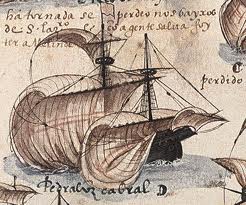 ha tornada se perdeo nos bayxos
de S. lazro e co agente salua foy
ter a Melinde
perdido
Pedraluz cabral D